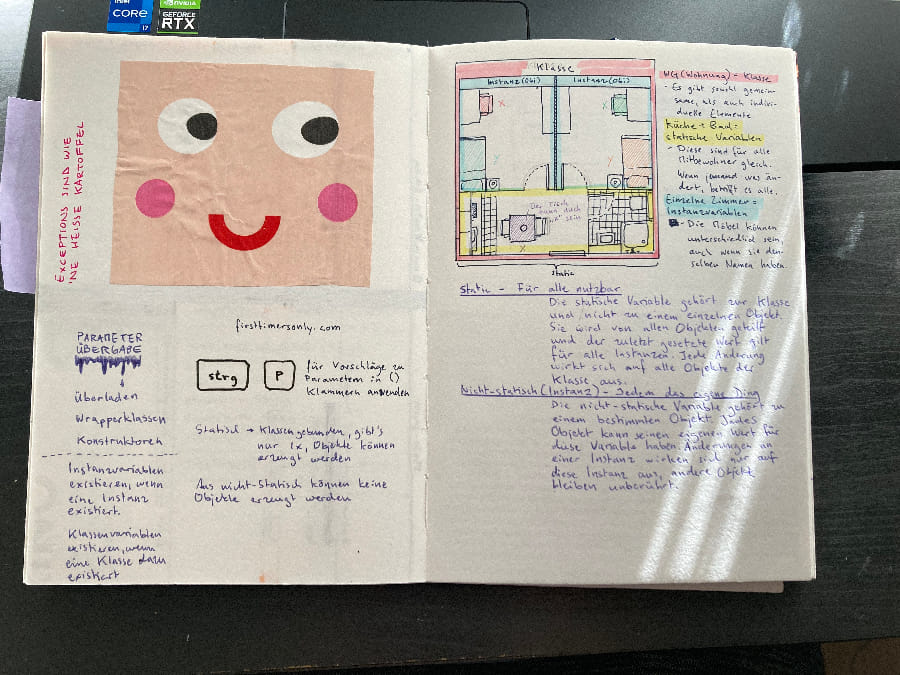 intel
CORE
i7
NVIDIA
GEFORCE
RTX
EXCEPTIONS SIND WIE
'NE HEISSE KARTOFFEL
PARAMETER
ÜBERGABE
Überladen
Wrapperklassen
Konstruktoren
Instanzvariablen
existieren, wenn
eine Instanz
existiert.
Klassenvariablen
existieren, wenn
eine Klasse dazu
existiert
firsttimersonly.com
strg
P
für Vorschläge zu
Parametern in ()
Klammern anwenden
Statisch → Klassengebunden, gibt's
nur 1x, Objekte können
erzeugt werden
Aus nicht-statisch können keine
Objekte erzeugt werden
Klasse
Instanz (Obj)
Instanz (Obj)
X
X
X
Y
Der Tisch
kann auch
sein
X
static
WG (Wohnung) - Klasse
- Es gibt sowohl gemein-
same, als auch indivi-
duelle Elemente
Küche + Bad =
statische Variablen
- Diese sind für alle
Mitbewohner gleich.
Wenn jemand was än-
dert, betrifft es alle.
Einzelne Zimmer =
Instanzvariablen
- Die Möbel können
unterschiedlich sein,
auch wenn sie den-
selben Namen haben.
Static - Für alle nutzbar
Die statische Variable gehört zur Klasse
und nicht zu einem einzelnen Objekt.
Sie wird von allen Objekten geteilt
und der zuletzt gesetzte Wert gilt
für alle Instanzen. Jede Änderung
wirkt sich auf alle Objekte der
Klasse aus.
Nicht-statisch (Instanz) - Jedem das eigene Ding
Die nicht-statische Variable gehört zu
einem bestimmten Objekt. Jedes
Objekt kann seinen eigenen Wert für
diese Variable haben. Änderungen an
einer Instanz wirken sich nur auf
diese Instanz aus, andere Objekte
bleiben unberührt.